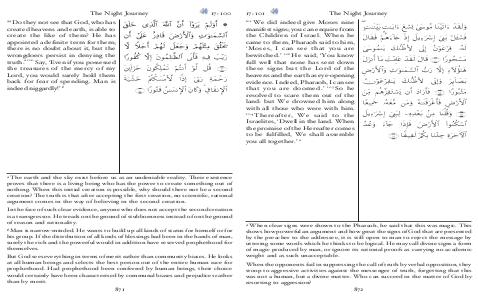 The Night Journey
17 : 100
❁ أَوَلَمْ يَرَوْا أَنَّ ٱللَّهَ ٱلَّذِى خَلَقَ
ٱلسَّمَـٰوَٰتِ وَٱلْأَرْضَ قَادِرٌ عَلَىٰٓ أَن
يَخْلُقَ مِثْلَهُمْ وَجَعَلَ لَهُمْ أَجَلًا لَّا
رَيْبَ فِيهِ فَأَبَى ٱلظَّـٰلِمُونَ إِلَّا كُفُورًا
قُل لَّوْ أَنتُمْ تَمْلِكُونَ خَزَآئِنَ
رَحْمَةِ رَبِّىٓ إِذًا لَّأَمْسَكْتُمْ خَشْيَةَ
ٱلْإِنفَاقِ وَكَانَ ٱلْإِنسَـٰنُ قَتُورًا
Do they not see that God, who has
created heavens and earth, is able to
create the like of them? He has
appointed a definite term for them,
there is no doubt about it, but the
wrongdoers persist in denying the
truth. Say, 'Even if you possessed
the treasures of the mercy of my
Lord, you would surely hold them
back for fear of spending. Man is
indeed niggardly!'
The earth and the sky exist before us as an undeniable reality. Their existence
proves that there is a living being who has the power to create something out of
nothing. When this initial creation is possible, why should there not be a second
creation? The truth is that after accepting the first creation, no scientific, rational
argument comes in the way of believing in the second creation.
In the face of such clear evidence, anyone who does not accept the second creation
is a transgressor. He stands on the ground of stubbornness instead of on the ground
of reason and rationality.
Man is narrow-minded. He wants to build up all kinds of status for himself or for
his group. If the distribution of all kinds of blessings had been in the hands of man,
surely the rich and the powerful would in addition have reserved prophethood for
themselves.
But God sees everything in terms of merit rather than communal bias. He looks
at all human beings and selects the best person out of the entire human race for
prophethood. Had prophethood been conferred by human beings, their choice
would certainly have been characterized by communal biases and prejudice rather
than by merit.
871
17 : 101
The Night Journey
We did indeed give Moses nine
manifest signs; you can enquire from
the Children of Israel. When he
came to them, Pharaoh said to him,
'Moses, I can see that you are
bewitched.' He said, 'You know
full well that none has sent down
these signs but the Lord of the
heavens and the earth as eye-opening
evidence. Indeed, Pharaoh, I can see
that you are doomed.' So he
resolved to scare them out of the
land: but We drowned him along
with all those who were with him.
Thereafter, We said to the
Israelites, 'Dwell in the land. When
the promise of the Hereafter comes
to be fulfilled, We shall assemble
you all together.'
وَلَقَدْ ءَاتَيْنَا مُوسَىٰ تِسْعَ ءَايَـٰتٍۭ بَيِّنَـٰتٍ
فَسْـَٔلْ بَنِىٓ إِسْرَٰٓءِيلَ إِذْ جَآءَهُمْ فَقَالَ
لَهُۥ فِرْعَوْنُ إِنِّى لَأَظُنُّكَ يَـٰمُوسَىٰ
مَسْحُورًا قَالَ لَقَدْ عَلِمْتَ مَآ أَنزَلَ
هَـٰٓؤُلَآءِ إِلَّا رَبُّ ٱلسَّمَـٰوَٰتِ وَٱلْأَرْضِ
بَصَآئِرَ وَإِنِّى لَأَظُنُّكَ يَـٰفِرْعَوْنُ
مَثْبُورًا فَأَرَادَ أَن يَسْتَفِزَّهُم مِّنَ
ٱلْأَرْضِ فَأَغْرَقْنَـٰهُ وَمَن مَّعَهُۥ جَمِيعًا
وَقُلْنَا مِنۢ بَعْدِهِۦ لِبَنِىٓ إِسْرَٰٓءِيلَ
ٱسْكُنُوا۟ ٱلْأَرْضَ فَإِذَا جَآءَ وَعْدُ
ٱلْـَٔاخِرَةِ جِئْنَا بِكُمْ لَفِيفًا
When clear signs were shown to the Pharaoh, he said that this was magic. This
shows how powerful an argument and how great the signs of God that are presented
by the preacher to the addressee, it is still open to man to reject the message by
uttering some words which he thinks to be logical. He may call divine signs a form
of magic produced by man, or ignore its rational proofs as carrying no academic
weight and as such unacceptable.
When the opponents fail to suppress the call of truth by verbal opposition, they
stoop to aggressive activities against the messenger of truth, forgetting that this
was not a human, but a divine matter. Who can succeed in the matter of God by
resorting to aggression?
872